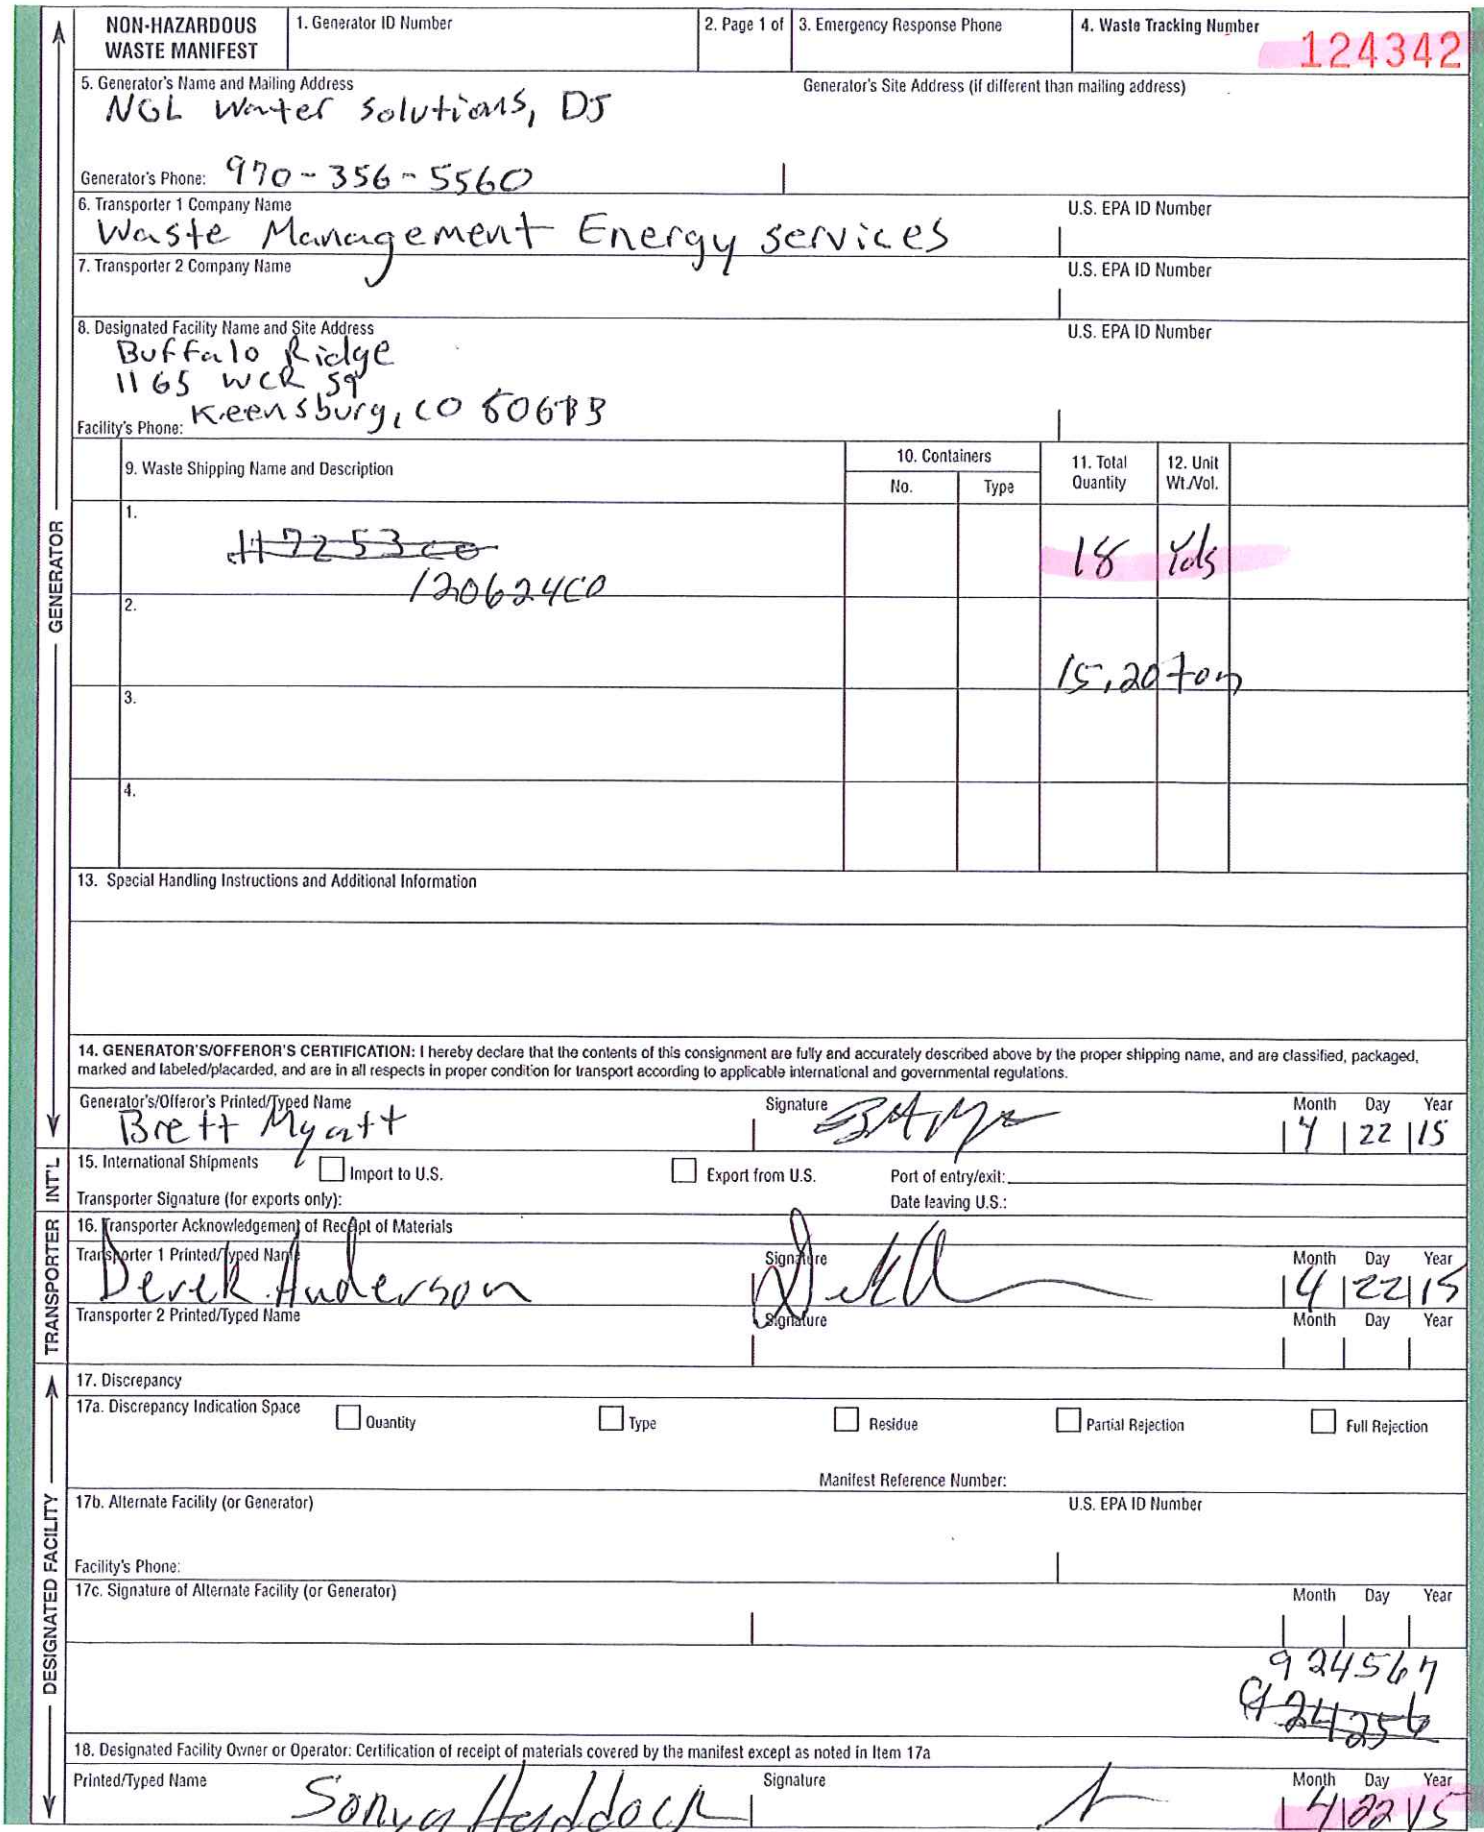 NON-HAZARDOUS WASTE MANIFEST
1. Generator ID Number
2. Page 1 of
3. Emergency Response Phone
4. Waste Tracking Number
124342
5. Generator's Name and Mailing Address
Generator's Site Address (if different than mailing address)
NGL Water Solutions, DJ
Generator's Phone: 970-356-5560
6. Transporter 1 Company Name
U.S. EPA ID Number
Waste Management Energy Services
7. Transporter 2 Company Name
U.S. EPA ID Number
8. Designated Facility Name and Site Address
U.S. EPA ID Number
Buffalo Ridge
1165 WCR 59
Keensburg, CO
Facility's Phone:
9. Waste Shipping Name and Description
10. Containers
No.
Type
11. Total Quantity
12. Unit Wt./Vol.
1.
117253CO
18 Yds
120624CO
2.
15.20 ton
3.
4.
13. Special Handling Instructions and Additional Information
14. GENERATOR'S/OFFEROR'S CERTIFICATION: I hereby declare that the contents of this consignment are fully and accurately described above by the proper shipping name, and are classified, packaged,
marked and labeled/placarded, and are in all respects in proper condition for transport according to applicable international and governmental regulations.
Generator's/Offeror's Printed/Typed Name
Signature
Month Day Year
Brett Myatt
4 22 15
15. International Shipments
Import to U.S.
Export from U.S.
Port of entry/exit:
Transporter Signature (for exports only):
Date leaving U.S.:
16. Transporter Acknowledgement of Receipt of Materials
Transporter 1 Printed/Typed Name
Signature
Month Day Year
Derek Anderson
4 22 15
Transporter 2 Printed/Typed Name
Signature
Month Day Year
17. Discrepancy
17a. Discrepancy Indication Space
Quantity
Type
Residue
Partial Rejection
Full Rejection
Manifest Reference Number:
17b. Alternate Facility (or Generator)
U.S. EPA ID Number
Facility's Phone:
17c. Signature of Alternate Facility (or Generator)
Month Day Year
924567
924256
18. Designated Facility Owner or Operator: Certification of receipt of materials covered by the manifest except as noted in Item 17a
Printed/Typed Name
Signature
Month Day Year
Sonya Haddock
4 22 15
GENERATOR
INT'L
TRANSPORTER
DESIGNATED FACILITY